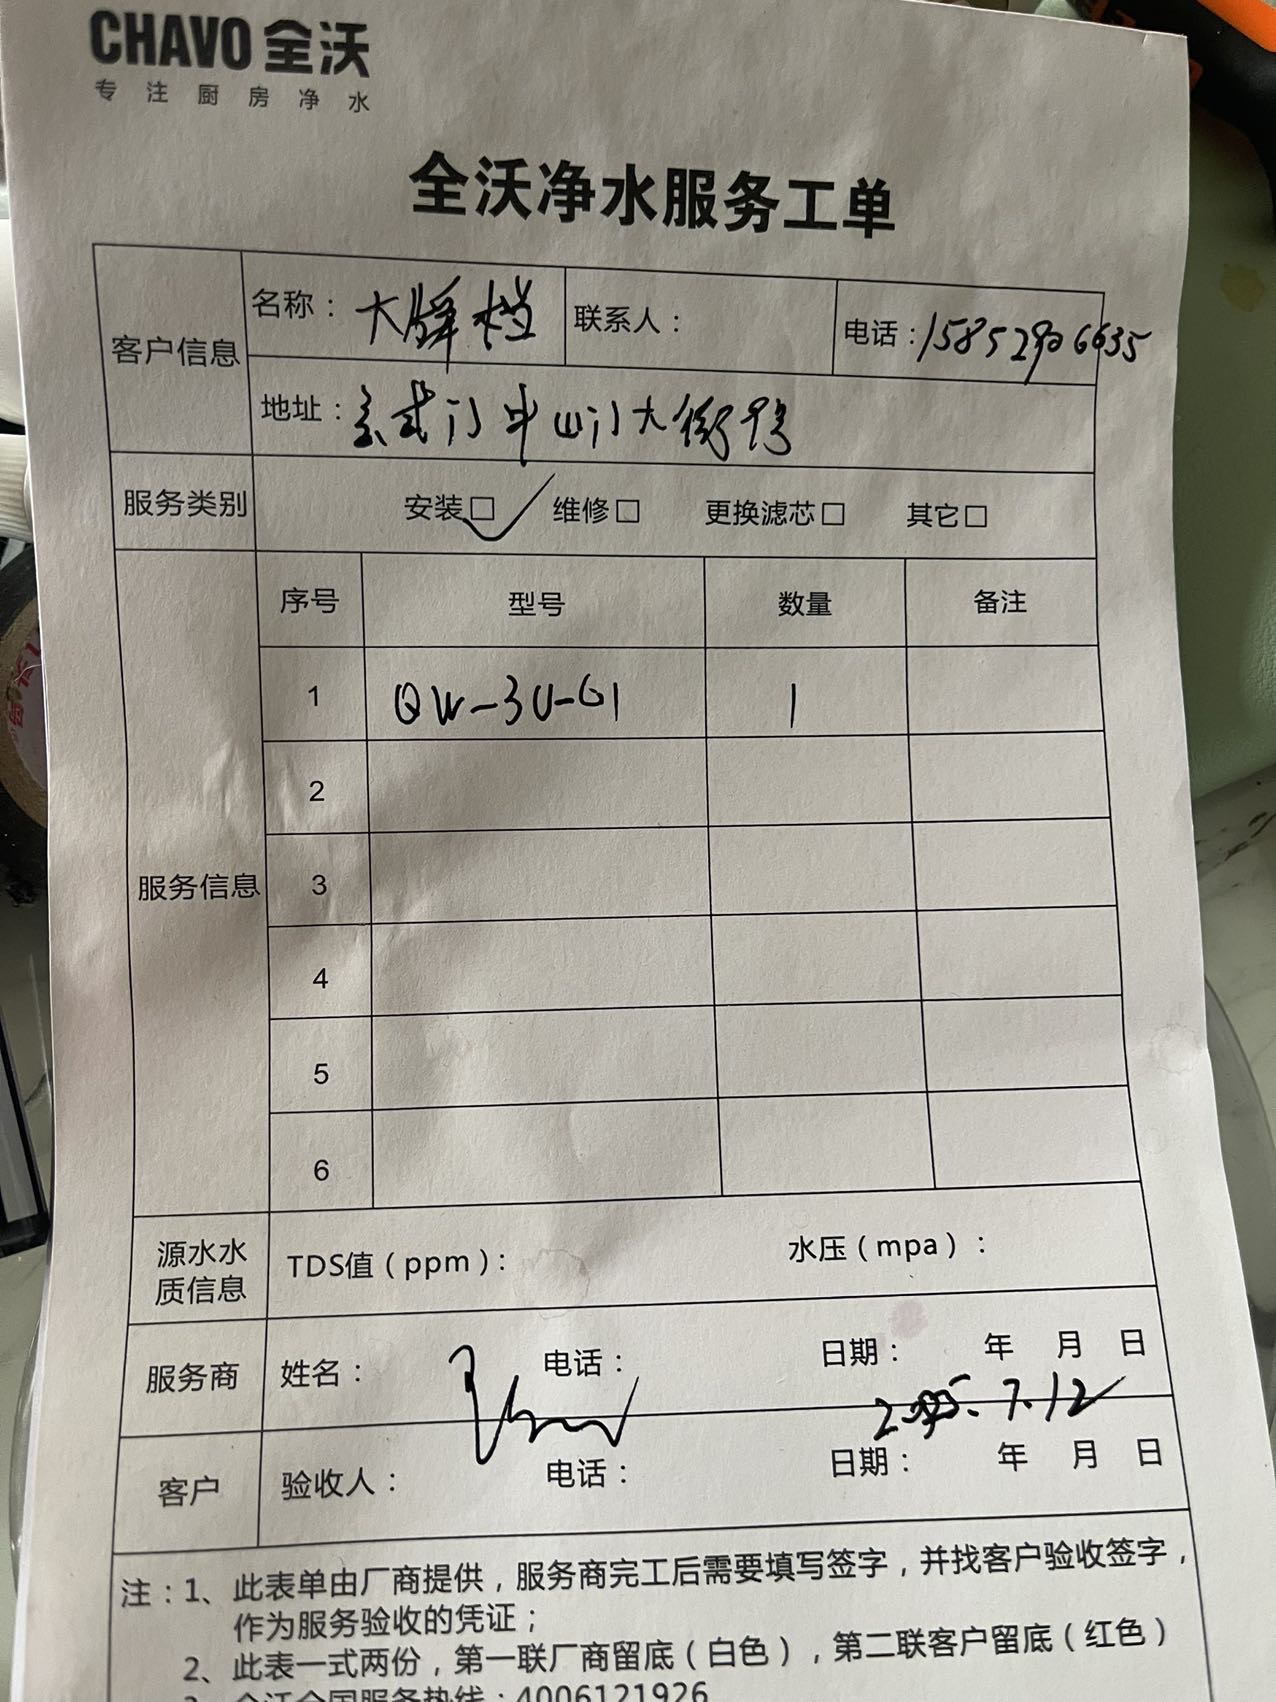 CHAVO 全沃
专注厨房净水
全沃净水服务工单
客户信息
名称：大牌档 联系人： 电话：15852906635
地址：
服务类别 安装□ 维修□ 更换滤芯□ 其它□
服务信息
序号 型号 数量 备注
1 QW-3U-G1 1
2
3
4
5
6
源水水质信息 TDS值（ppm）： 水压（mpa）：
服务商 姓名： 电话： 日期： 年 月 日
2025.7.12
客户 验收人： 电话： 日期： 年 月 日
注：1、此表单由厂商提供，服务商完工后需要填写签字，并找客户验收签字，
作为服务验收的凭证；
2、此表一式两份，第一联厂商留底（白色），第二联客户留底（红色）
3、全沃全国服务热线：4006121926